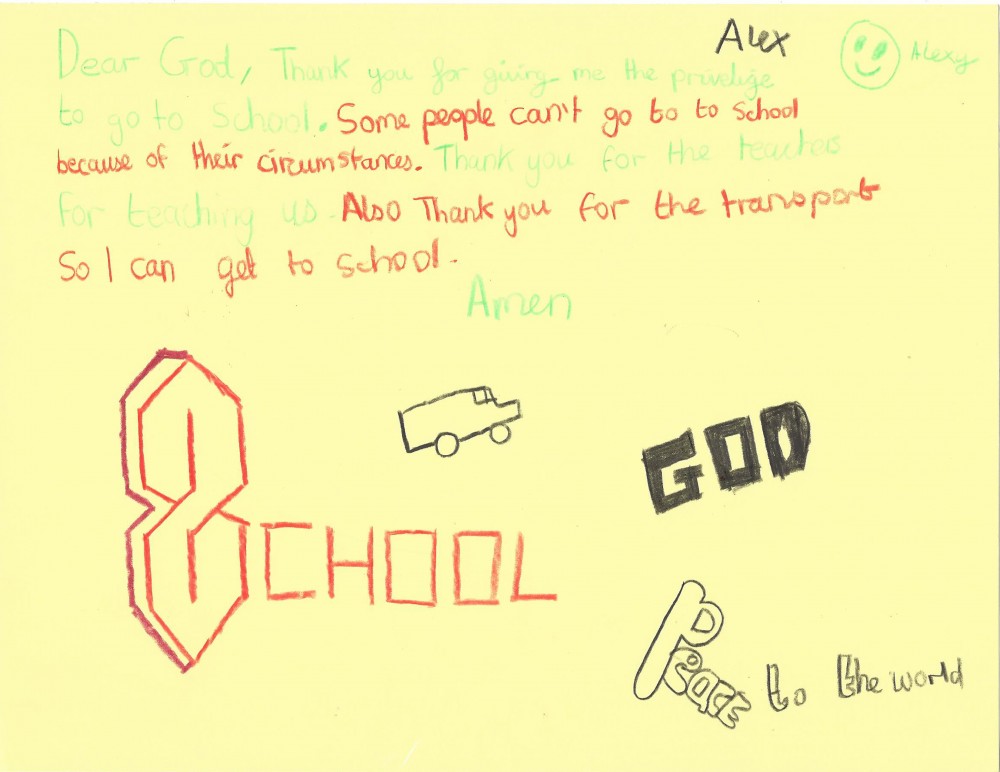 Alex
Alexy
Dear God, Thank you for giving me the privelige
to go to School. Some people can't go to to school
because of their circumstances. Thank you for the teachers
For teaching us. Also Thank you for the transport
So I can get to school.
Amen
GOD
SCHOOL
Peace to the world